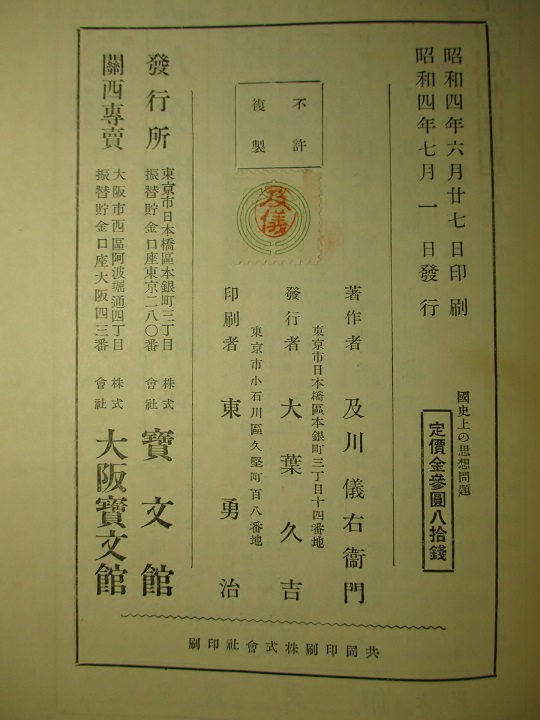 昭和四年六月廿七日印刷
昭和四年七月一日發行
國史上の思想問題
定價金參圓八拾錢
不許
複製
及儀
著作者 及川儀右衞門
東京市日本橋區本銀町三丁目十四番地
發行者 大葉久吉
東京市小石川區久堅町百八番地
印刷者 東勇治
發行所
東京市日本橋區本銀町三丁目
振替貯金口座東京二八〇番
株式
會社
寶文館
關西專賣
大阪市西區阿波堀通四丁目
振替貯金口座大阪四三番
株式
會社
大阪寶文館
共同印刷株式會社印刷